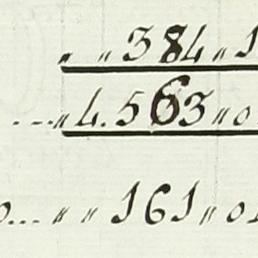 " " 384 " 1
...." 4.563 " 0
0... " " 161 " 01